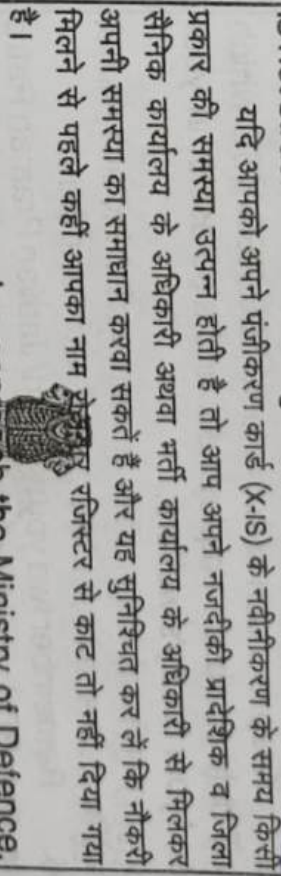 यदि आपको अपने पंजीकरण कार्ड (X-IS) के नवीनीकरण के समय किसी
प्रकार की समस्या उत्पन्न होती है तो आप अपने नजदीकी प्रादेशिक व जिला
सैनिक कार्यालय के अधिकारी अथवा भर्ती कार्यालय के अधिकारी से मिलकर
अपनी समस्या का समाधान करवा सकतें हैं और यह सुनिश्चित कर लें कि नौकरी
मिलने से पहले कहीं आपका नाम रजिस्टर से काट तो नहीं दिया गया
है।
the Ministry of Defence,